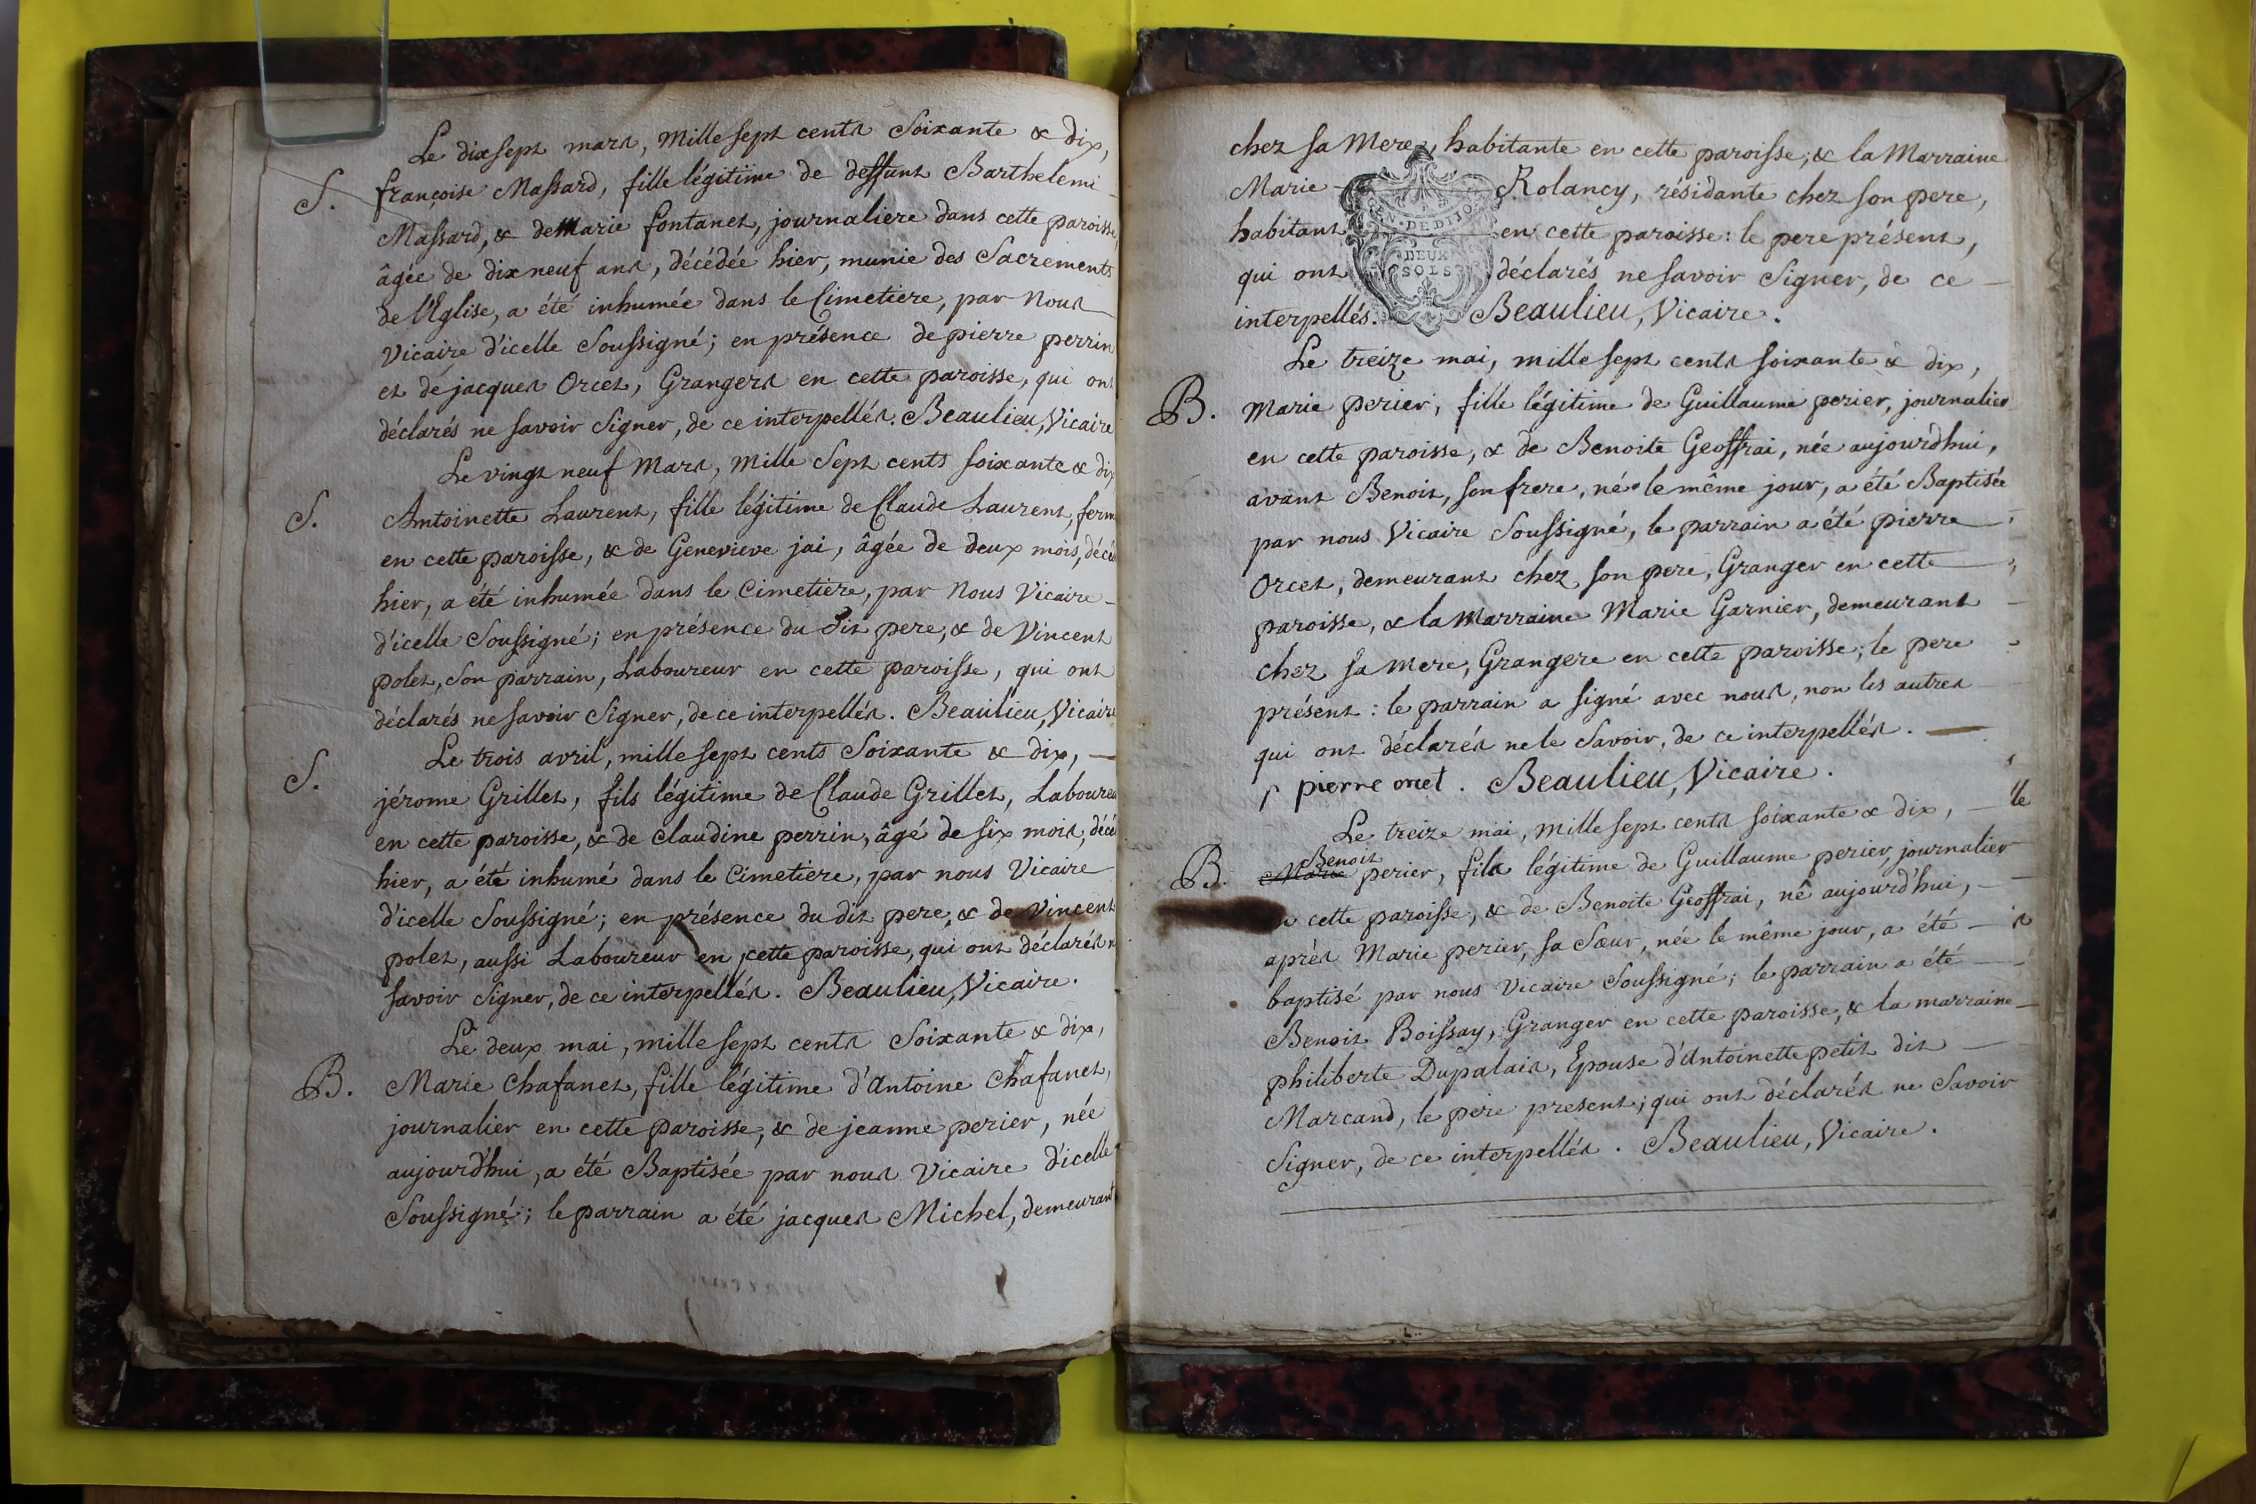 Le dixsept mars, mille sept cents Soixante & dix,
S. françoise Massard, fille légitime de deffunt Barthelemi
Massard, & de Marie fontanet, journaliere dans cette paroisse,
âgée de dix neuf ans, décédée hier, munie des Sacrements
de l'Eglise, a été inhumée dans le Cimetiere, par Nous
Vicaire d'icelle Soussigné; en présence de pierre perrin
et de jacques Orcet, Grangers en cette paroisse, qui ont
déclarés ne savoir Signer, de ce interpellés. Beaulieu, Vicaire
Le vingt neuf Mars, mille Sept cents soixante & dix
S. Antoinette Laurent, fille légitime de Claude Laurent, ferm
en cette paroisse, & de Genevieve jai, âgée de deux mois, décé
hier, a été inhumée dans le Cimetiere, par Nous Vicaire
d'icelle Soussigné; en présence du dit pere, & de Vincent
polet, Son parrain, Laboureur en cette paroisse, qui ont
déclarés ne savoir Signer, de ce interpellés. Beaulieu, Vicaire
Le trois avril, mille sept cents Soixante & dix,
S. jérome Grillet, fils légitime de Claude Grillet, Laboureu
en cette paroisse, & de Claudine perrin, âgé de six mois, décé
hier, a été inhumé dans le Cimetiere, par nous Vicaire
d'icelle Soussigné; en présence du dit pere, & de Vincent
polet, aussi Laboureur en cette paroisse, qui ont déclarés n
savoir Signer, de ce interpellés. Beaulieu, Vicaire.
Le deux mai, mille sept cents Soixante & dix,
B. Marie Chafanet, fille légitime d'Antoine Chafanet,
journalier en cette paroisse, & de jeanne perier, née
aujourd'hui, a été Baptisée par nous Vicaire d'icelle
Soussigné; le parrain a été jacques Michel, demeurant
chez sa Mere, habitante en cette paroisse; & la Marraine
Marie Rolancy, résidante chez son pere,
habitant en cette paroisse: le pere présent,
qui ont déclarés ne savoir Signer, de ce
interpellés. Beaulieu, Vicaire.
GEN. DE DIJON
DEUX
SOLS
Le treize mai, mille sept cents soixante & dix,
B. Marie perier, fille légitime de Guillaume perier, journalier
en cette paroisse, & de Benoite Geoffrai, née aujourdhui,
avant Benoit, son frere, né le même jour, a été Baptisée
par nous Vicaire Soussigné, le parrain a été pierre
Orcet, demeurant chez son pere, Granger en cette
paroisse, & la Marraine Marie Garnier, demeurant
chez sa mere, Grangere en cette paroisse; le pere
présent: le parrain a signé avec nous, non les autres
qui ont déclarés ne le Savoir, de ce interpellés.
pierre orcet. Beaulieu, Vicaire.
Le treize mai, mille sept cents soixante & dix,
Benoit
B. Marie perier, fils légitime de Guillaume perier, journalier
cette paroisse, & de Benoite Geoffrai, né aujourd'hui,
après Marie perier, sa Sœur, née le même jour, a été
baptisé par nous Vicaire Soussigné; le parrain a été
Benoit Boissay, Granger en cette paroisse, & la marraine
philiberte Dupalais, Epouse d'Antoinette petit dit
Marcand, le pere present; qui ont déclarés ne Savoir
Signer, de ce interpellés. Beaulieu, Vicaire.